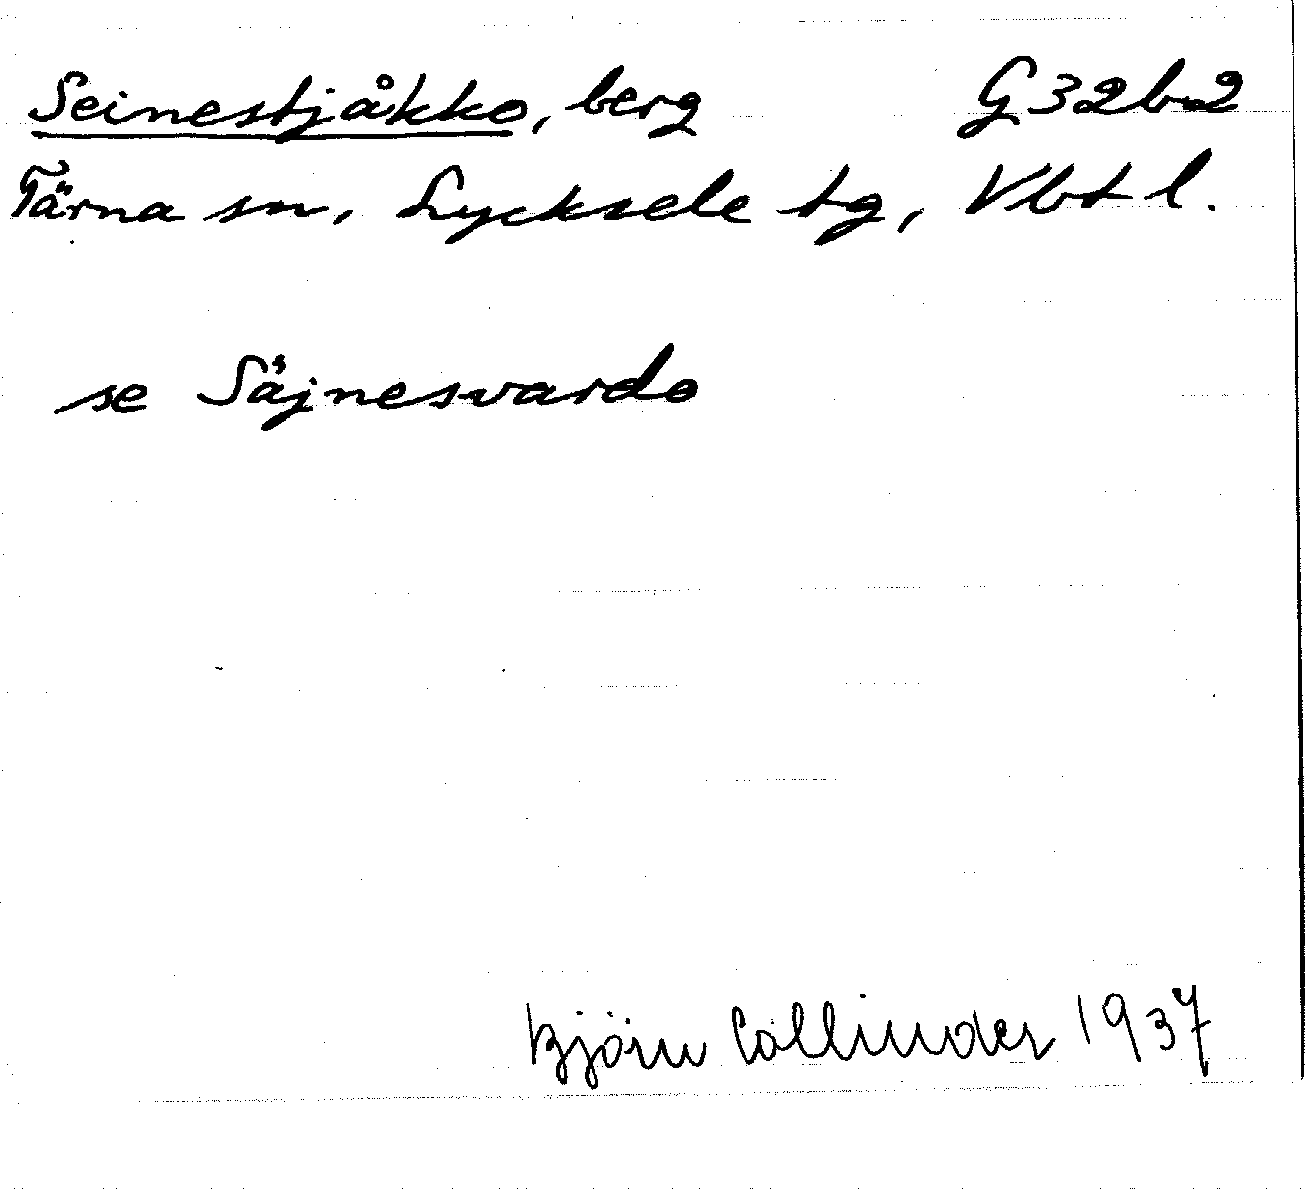 Seinestjåkko, berg G32b2
Tärna sn, Lycksele tg, Vbt l.
se Säjnesvardo
Björn Collinder 1937